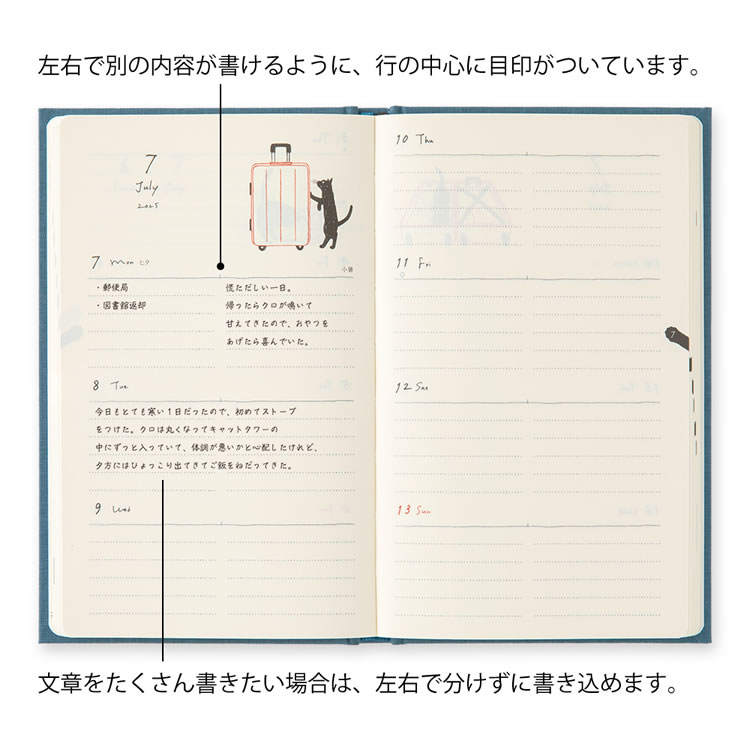 左右で別の内容が書けるように、行の中心に目印がついています。
7
July
2025
7 mon 七夕
小暑
・郵便局
・図書館返却
慌ただしい一日。
帰ったらクロが鳴いて
甘えてきたので、おやつを
あげたら喜んでいた。
8 Tue
今日もとても寒い1日だったので、初めてストーブ
をつけた。クロは丸くなってキャットタワーの
中にずっと入っていて、体調が悪いかと心配したけれど、
夕方にはひょっこり出てきてご飯をねだってきた。
9 Wed
10 Thu
11 Fri
7
12 Sat
13 Sun
文章をたくさん書きたい場合は、左右で分けずに書き込めます。